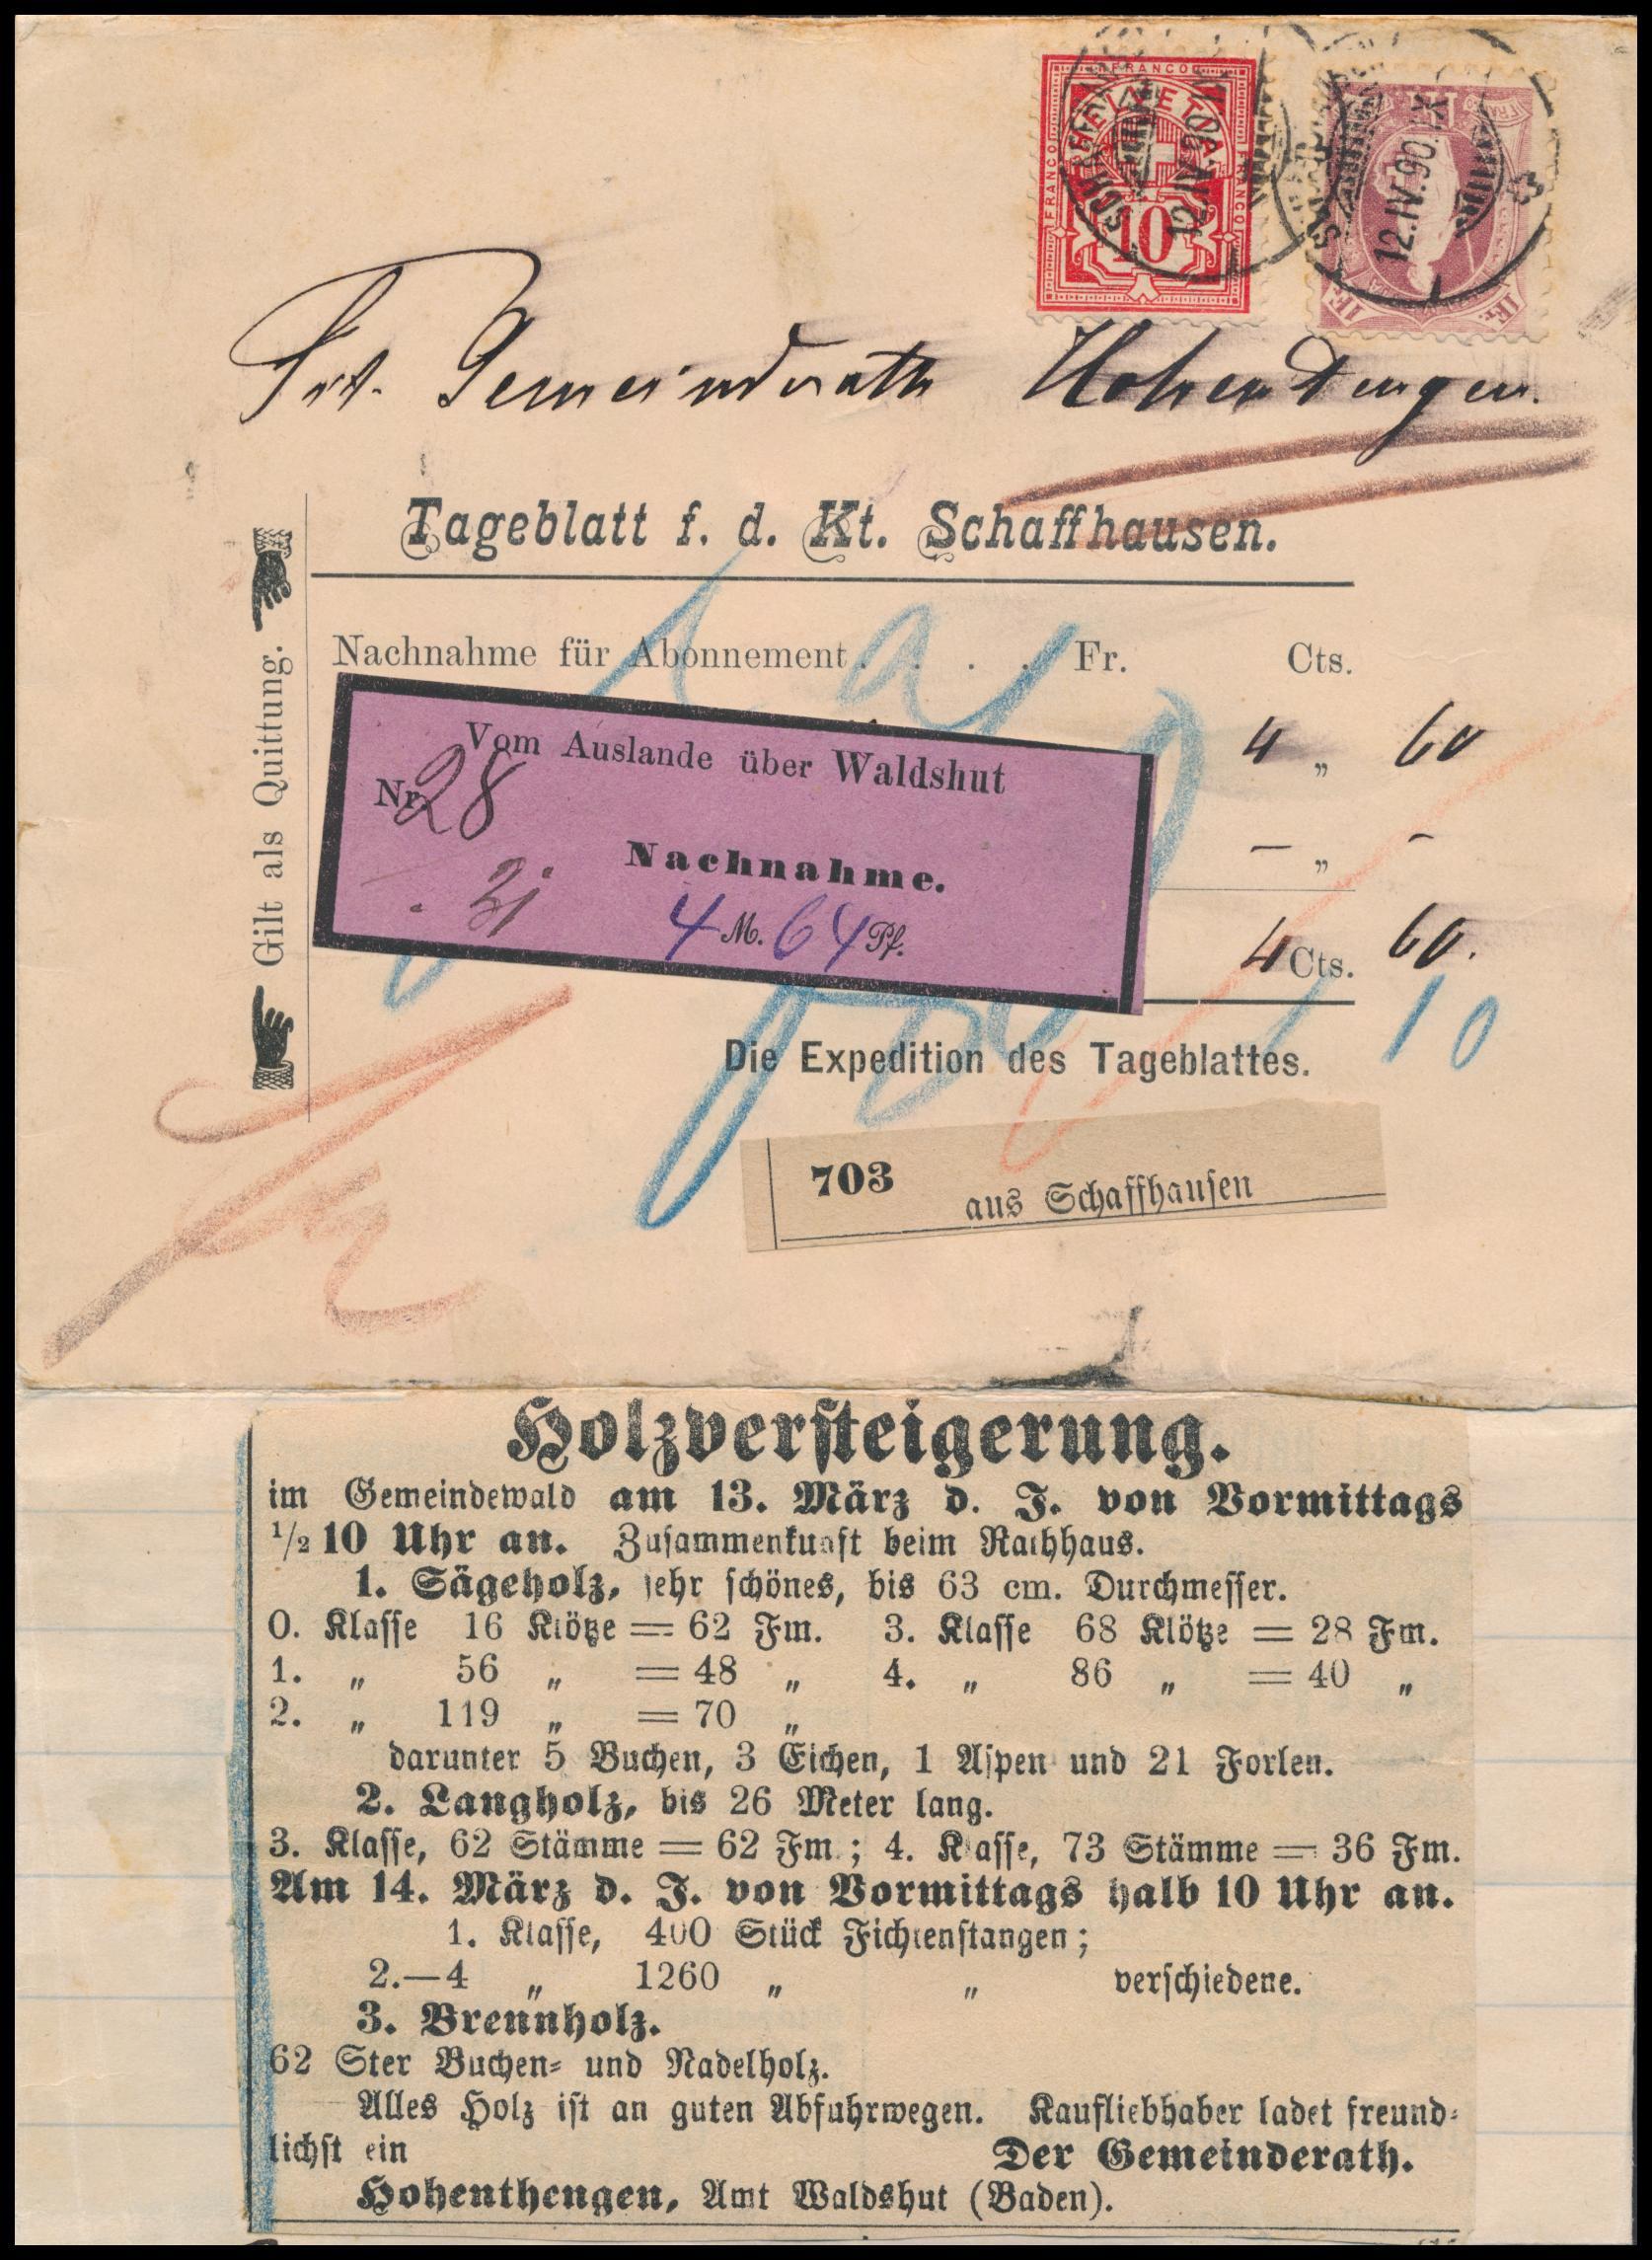 FRANCO
HELVETIA
FRANCO
FRANCO
10
12.IV.90.IX
12.IV.90.IX
Gemeindrath Hohendengen.
Tageblatt f. d. Kt. Schaffhausen.
Gilt als Quittung.
Nachnahme für Abonnement . . . . Fr. Cts.
4 „ 60
— „ -
4 Cts. 60.
Vom Auslande über Waldshut
Nr. 28
Nachnahme.
4 M. 64 Pf.
10
Die Expedition des Tageblattes.
703 aus Schaffhausen
Holzversteigerung.
im Gemeindewald am 13. März d. J. von Vormittags
1/2 10 Uhr an. Zusammenkunft beim Rathhaus.
1. Sägeholz, sehr schönes, bis 63 cm. Durchmesser.
0. Klasse 16 Klötze = 62 Fm. 3. Klasse 68 Klötze = 28 Fm.
1. „ 56 „ = 48 „ 4. „ 86 „ = 40 „
2. „ 119 „ = 70 „
darunter 5 Buchen, 3 Eichen, 1 Aspen und 21 Forlen.
2. Langholz, bis 26 Meter lang.
3. Klasse, 62 Stämme = 62 Fm.; 4. Klasse, 73 Stämme = 36 Fm.
Am 14. März d. J. von Vormittags halb 10 Uhr an.
1. Klasse, 400 Stück Fichtenstangen;
2.—4 „ 1260 „ „ verschiedene.
3. Brennholz.
62 Ster Buchen- und Nadelholz.
Alles Holz ist an guten Abfuhrwegen. Kaufliebhaber ladet freund-
lichst ein Der Gemeinderath.
Hohenthengen, Amt Waldshut (Baden).